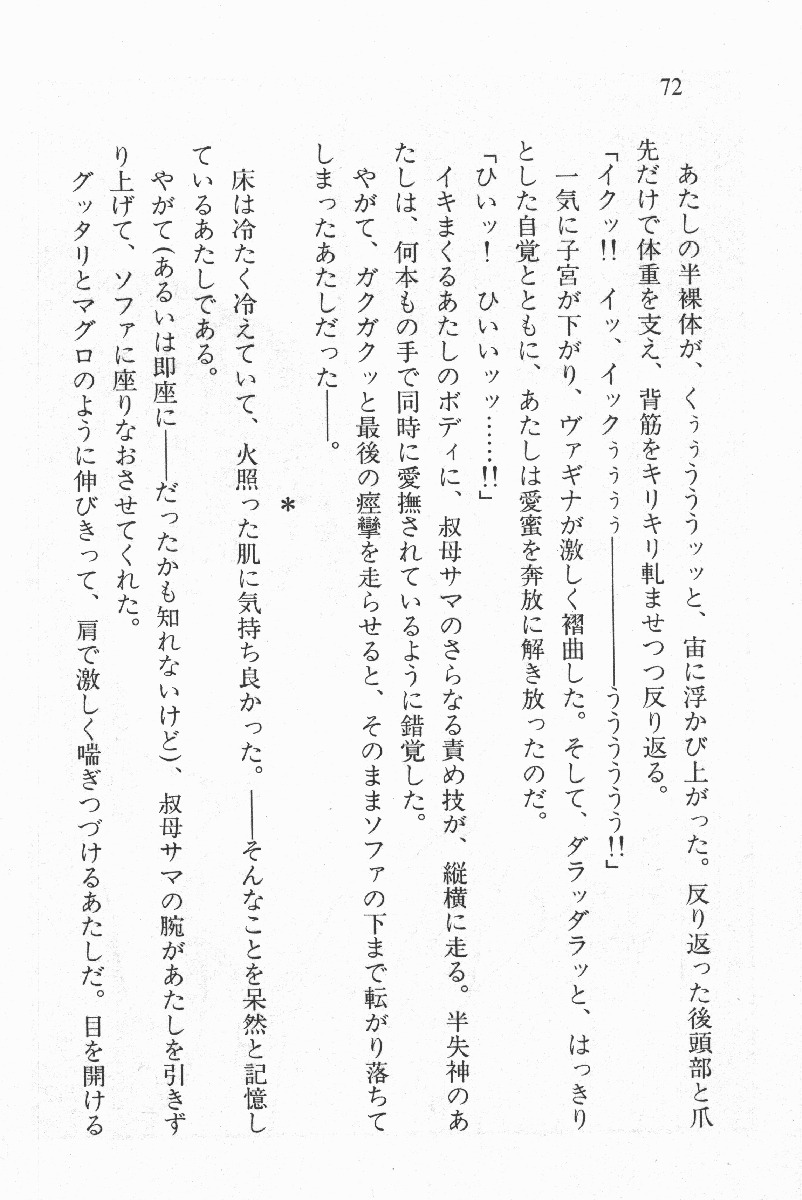 72
あたしの半裸体が、くぅぅうううッッと、宙に浮かび上がった。反り返った後頭部と爪
先だけで体重を支え、背筋をキリキリ軋ませつつ反り返る。
「イクッ!! イッ、イックぅぅぅぅ――――――うううううう!!」
一気に子宮が下がり、ヴァギナが激しく褶曲した。そして、ダラッダラッと、はっきり
とした自覚とともに、あたしは愛蜜を奔放に解き放ったのだ。
「ひいッ! ひいいッッ……!!」
イキまくるあたしのボディに、叔母サマのさらなる責め技が、縦横に走る。半失神のあ
たしは、何本もの手で同時に愛撫されているように錯覚した。
やがて、ガクガクッと最後の痙攣を走らせると、そのままソファの下まで転がり落ちて
しまったあたしだった――。
*
床は冷たく冷えていて、火照った肌に気持ち良かった。――そんなことを呆然と記憶し
ているあたしである。
やがて(あるいは即座に――だったかも知れないけど)、叔母サマの腕があたしを引きず
り上げて、ソファに座りなおさせてくれた。
グッタリとマグロのように伸びきって、肩で激しく喘ぎつづけるあたしだ。目を開ける